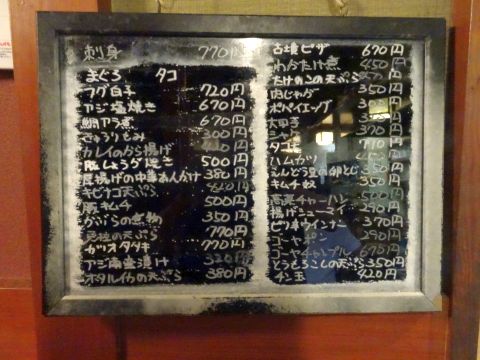 刺身 770円
まぐろ タコ
フグ白子 720円
アジ塩焼き 670円
鯛アラ煮 670円
きゅうりもみ 300円
カレイのから揚げ
豚しょうが焼き 500円
厚揚げの中華あんかけ 380円
キビナゴ天ぷら
豚キムチ 500円
かぶらの煮物 350円
天ぷら 770円
カツオタタキ 770円
アジ南蛮漬け 320円
ホタルイカの天ぷら 380円
古墳ピザ 670円
わかたけ煮 450円
たけのこの天ぷら
肉じゃが 350円
ポパイエッグ 350円
タコ
ハムカツ
えんどう豆の卵とじ
キムチ奴 350円
高菜チャーハン 500円
揚げシューマイ 390円
ピリ辛ウインナー 370円
ゴーヤポン 390円
ゴーヤチャンプル 670円
とうもろこしの天ぷら 350円
チン玉 420円